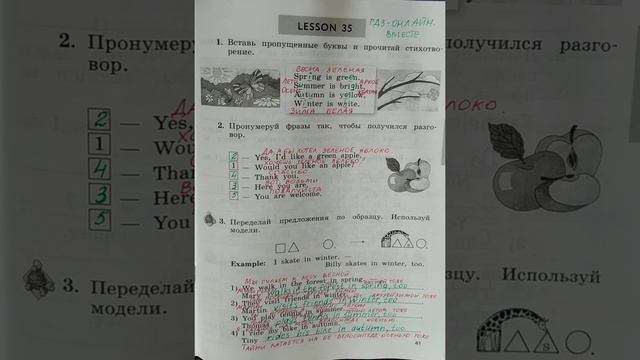 LESSON 35
ГДЗ-ОНЛАЙН.
ВМЕСТЕ
1. Вставь пропущенные буквы и прочитай стихотво-
рение.
ВЕСНА ЗЕЛЁНАЯ
Spring is green,
Summer is bright,
Autumn is yellow,
Winter is white.
ЗИМА БЕЛАЯ
2. Пронумеруй фразы так, чтобы получился разго-
вор.
ДА, Я БЫ ХОТЕЛ ЗЕЛЁНОЕ ЯБЛОКО
2 — Yes, I'd like a green apple.
1 — Would you like an apple?
СПАСИБО
4 — Thank you.
3 — Here you are.
ПОЖАЛУЙСТА
5 — You are welcome.
3. Переделай предложения по образцу. Используй
модели.
Example: I skate in winter. —
Billy skates in winter, too.
МЫ ГУЛЯЕМ В ЛЕСУ ВЕСНОЙ
1) We walk in the forest in spring.
Mary walks in the forest in spring, too
2) They visit friends in winter.
Martin visits friends in winter, too
3) You play tennis in summer.
Thomas plays tennis in summer, too
4) I ride my bike in autumn.
Tiny rides his bike in autumn, too
ТАЙНИ КАТАЕТСЯ НА ЕЁ ВЕЛОСИПЕДЕ ОСЕНЬЮ ТОЖЕ
41
2. Пронумеру
вор.
2 — Yes,
1 — Wou
4 — Than
3 — Here
5 — You
3. Переделай
модели.
получился разго-
ЯБЛОКО.
Используй